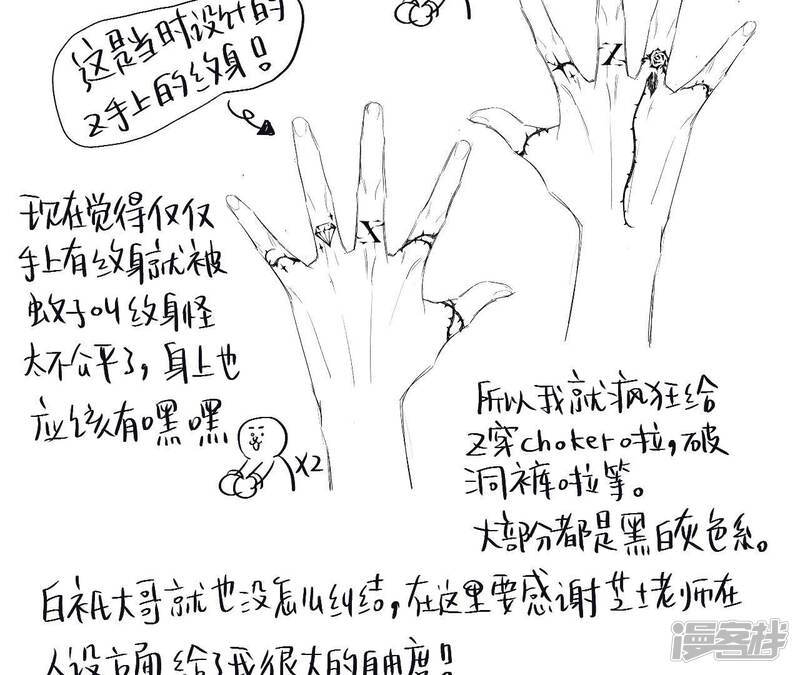 这是当时设计的
Z手上的纹身！
Z
X
现在觉得仅仅
手上有纹身就被
蚊子叫纹身怪
太不公平了，身上也
应该有嘿嘿
X2
所以我就疯狂给
Z穿choker啦，破
洞裤啦等。
大部分都是黑白灰色系。
白祇大哥就也没怎么纠结，在这里要感谢芝士老师在
人设方面给了我很大的自由度！
漫客栈